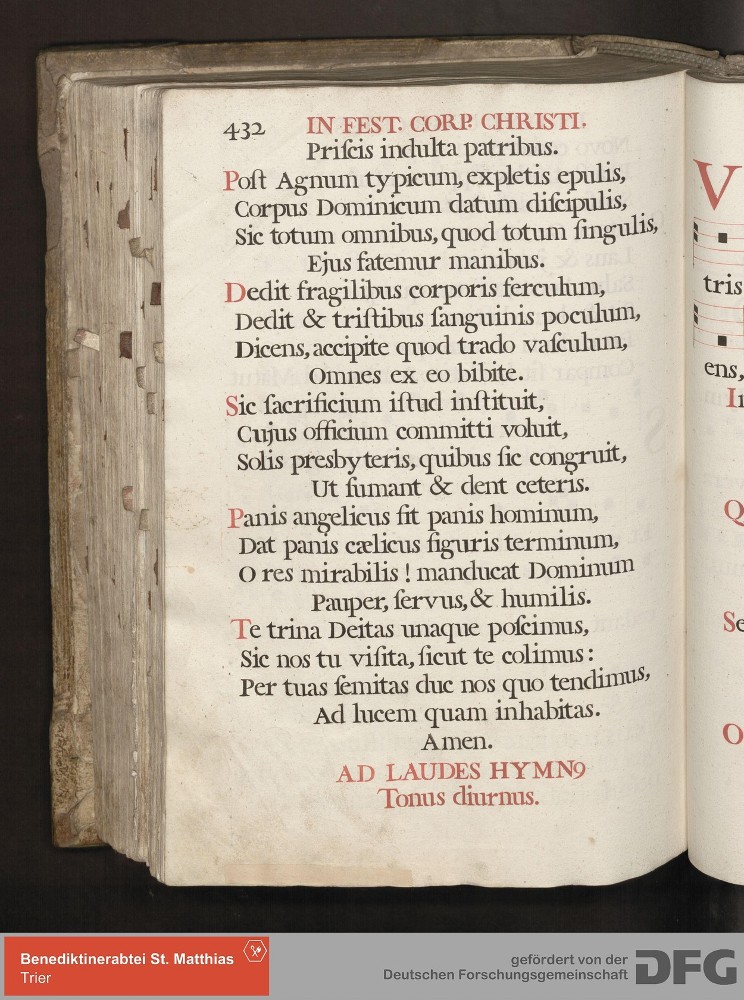 432 IN FEST. CORP. CHRISTI.
Priſcis indulta patribus.
Poſt Agnum typicum, expletis epulis,
Corpus Dominicum datum diſcipulis,
Sic totum omnibus, quod totum ſingulis,
Ejus fatemur manibus.
Dedit fragilibus corporis ferculum,
Dedit & triſtibus ſanguinis poculum,
Dicens, accipite quod trado vaſculum,
Omnes ex eo bibite.
Sic ſacrificium iſtud inſtituit,
Cujus officium committi voluit,
Solis presbyteris, quibus ſic congruit,
Ut ſumant & dent ceteris.
Panis angelicus fit panis hominum,
Dat panis cælicus figuris terminum,
O res mirabilis ! manducat Dominum
Pauper, ſervus, & humilis.
Te trina Deitas unaque poſcimus,
Sic nos tu viſita, ſicut te colimus :
Per tuas ſemitas duc nos quo tendimus,
Ad lucem quam inhabitas.
Amen.
AD LAUDES HYMNꝰ
Tonus diurnus.
V
tris
ens,
Q
Se
O
Benediktinerabtei St. Matthias
Trier
gefördert von der
Deutschen Forschungsgemeinschaft
DFG